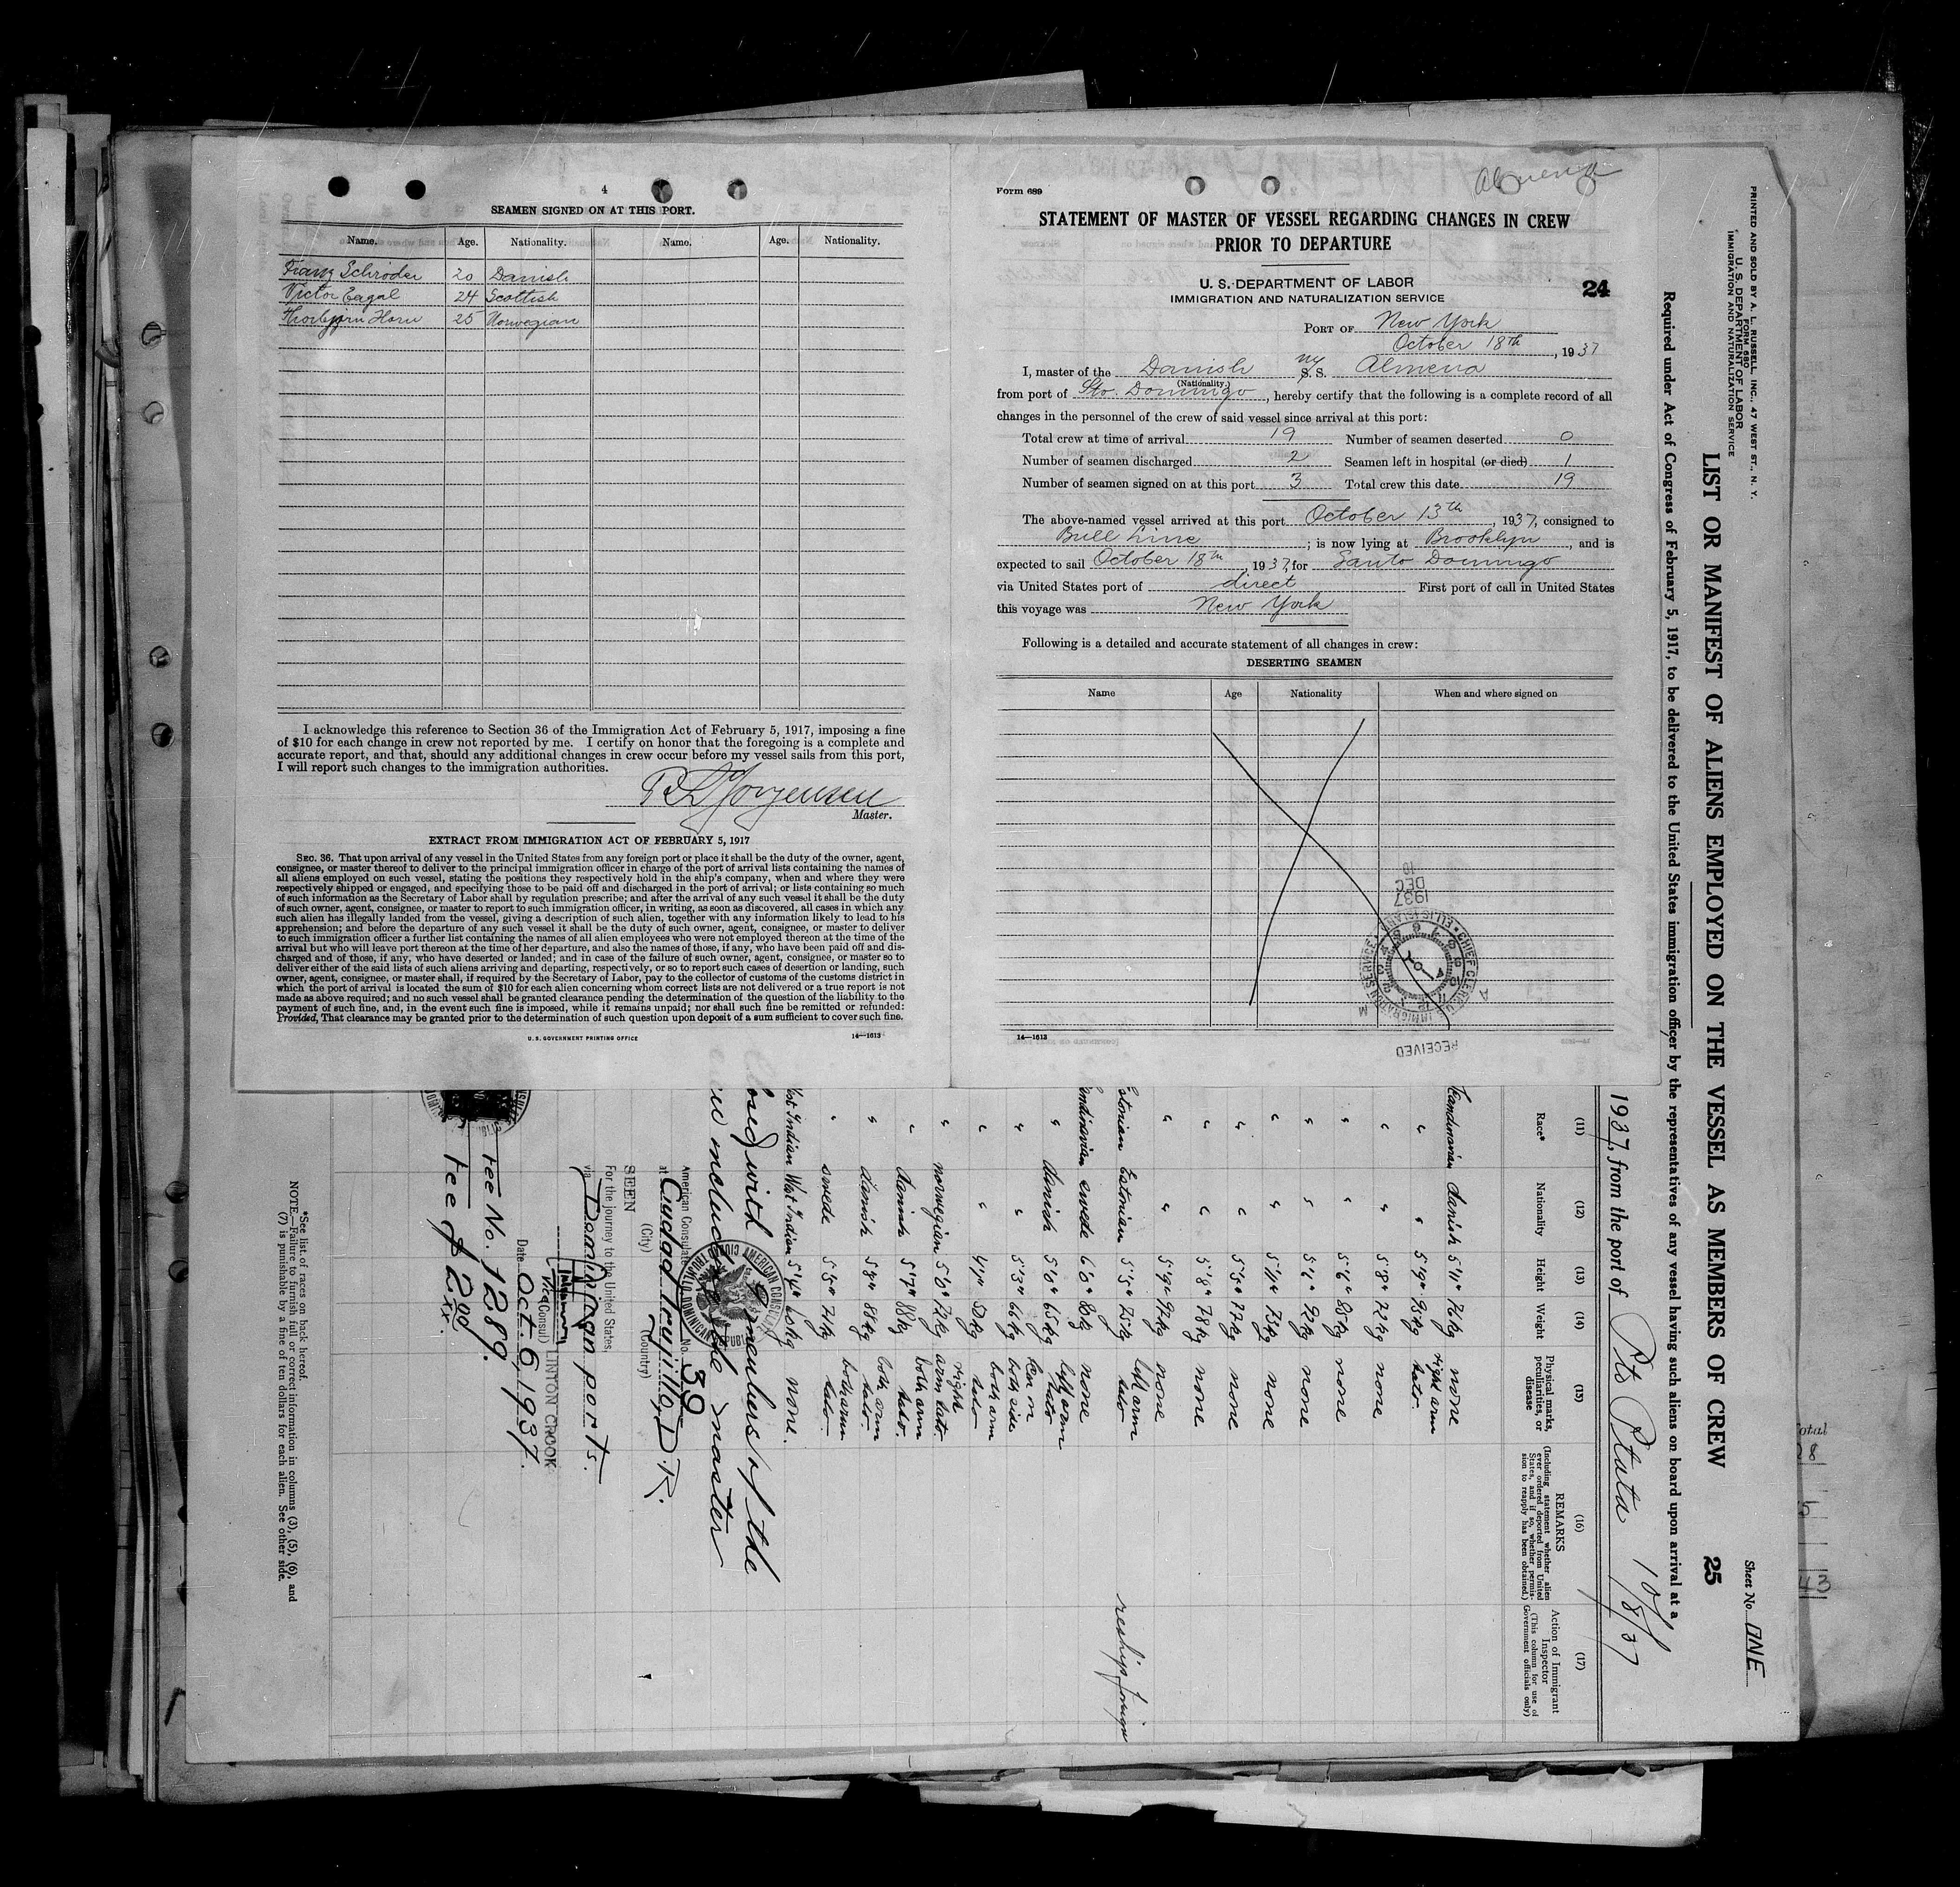 4
SEAMEN SIGNED ON AT THIS PORT.
Name. Age. Nationality. Name. Age. Nationality.
Franz Schröder 20 Danish
Victor Eagal 24 Scottish
Thorbjørn Horn 25 Norwegian
I acknowledge this reference to Section 36 of the Immigration Act of February 5, 1917, imposing a fine
of $10 for each change in crew not reported by me. I certify on honor that the foregoing is a complete and
accurate report, and that, should any additional changes in crew occur before my vessel sails from this port,
I will report such changes to the immigration authorities.
Jorgensen
Master.
EXTRACT FROM IMMIGRATION ACT OF FEBRUARY 5, 1917
SEC. 36. That upon arrival of any vessel in the United States from any foreign port or place it shall be the duty of the owner, agent,
consignee, or master thereof to deliver to the principal immigration officer in charge of the port of arrival lists containing the names of
all aliens employed on such vessel, stating the positions they respectively hold in the ship's company, when and where they were
respectively shipped or engaged, and specifying those to be paid off and discharged in the port of arrival; or lists containing so much
of such information as the Secretary of Labor shall by regulation prescribe; and after the arrival of any such vessel it shall be the duty
of such owner, agent, consignee, or master to report to such immigration officer, in writing, as soon as discovered, all cases in which any
such alien has illegally landed from the vessel, giving a description of such alien, together with any information likely to lead to his
apprehension; and before the departure of any such vessel it shall be the duty of such owner, agent, consignee, or master to deliver
to such immigration officer a further list containing the names of all alien employees who were not employed thereon at the time of the
arrival but who will leave port thereon at the time of her departure, and also the names of those, if any, who have been paid off and dis-
charged and of those, if any, who have deserted or landed; and in case of the failure of such owner, agent, consignee, or master so to
deliver either of the said lists of such aliens arriving and departing, respectively, or so to report such cases of desertion or landing, such
owner, agent, consignee, or master shall, if required by the Secretary of Labor, pay to the collector of customs of the customs district in
which the port of arrival is located the sum of $10 for each alien concerning whom correct lists are not delivered or a true report is not
made as above required; and no such vessel shall be granted clearance pending the determination of the question of the liability to the
payment of such fine, and, in the event such fine is imposed, while it remains unpaid; nor shall such fine be remitted or refunded:
Provided, That clearance may be granted prior to the determination of such question upon deposit of a sum sufficient to cover such fine.
U. S. GOVERNMENT PRINTING OFFICE 14—1613
Almena
Form 689
STATEMENT OF MASTER OF VESSEL REGARDING CHANGES IN CREW
PRIOR TO DEPARTURE
U. S. DEPARTMENT OF LABOR
IMMIGRATION AND NATURALIZATION SERVICE
24
PORT OF New York
October 18th, 1937
I, master of the Danish S. S. Almena
(Nationality.)
from port of Sto. Domingo, hereby certify that the following is a complete record of all
changes in the personnel of the crew of said vessel since arrival at this port:
Total crew at time of arrival 19 Number of seamen deserted 0
Number of seamen discharged 2 Seamen left in hospital (or died) 1
Number of seamen signed on at this port 3 Total crew this date 19
The above-named vessel arrived at this port October 13th, 1937, consigned to
Bull Line; is now lying at Brooklyn, and is
expected to sail October 18th, 1937, for Santo Domingo
via United States port of direct First port of call in United States
this voyage was New York
Following is a detailed and accurate statement of all changes in crew:
DESERTING SEAMEN
Name Age Nationality When and where signed on
1937
DEC
10
CHIEF CLERK U.S. IMMIGRATION SERVICE ELLIS ISLAND
RECEIVED
14—1613
PRINTED AND SOLD BY A. L. RUSSELL, INC., 47 WEST ST., N. Y.
FORM 680
U. S. DEPARTMENT OF LABOR
IMMIGRATION AND NATURALIZATION SERVICE
Sheet No. ONE
LIST OR MANIFEST OF ALIENS EMPLOYED ON THE VESSEL AS MEMBERS OF CREW 25
Required under Act of Congress of February 5, 1917, to be delivered to the United States immigration officer by the representatives of any vessel having such aliens on board upon arrival at a
1937, from the port of Pto Plata 10/8/37
(11) (12) (13) (14) (15) (16) (17)
Race* Nationality Height Weight Physical marks, peculiarities, or disease REMARKS (Including statement whether alien ever ordered deported from United States, and if so, whether permission to reapply has been obtained.) Action of Immigrant Inspector (This column for use of Government officials only)
Scandinavian danish 5'11" 76kg none
" " 5'9" 95kg right arm tato.
" " 5'8" 72kg none
" " 5'6" 85kg none
" " 92kg none
" " 5'11" 73kg none
" " 5'5" 77kg none
" " 5'8" 78kg none
" " 5'9" 92kg none
Estonian Estonian 5'5" 75kg left arm tato reship foreign
Scandinavian swede 6'0" 80kg none
" danish 5'6" 65kg left arm tato
" " 5'3" 66kg both side
" " both arm tato
" norwegian 5'0" 72kg right arm tato.
" danish 5'7" 88kg both arm tato.
" danish 5'8" 88kg both arm tato.
" swede 5'5" 71kg both arm tato.
West Indian West Indian 5'4" 60kg none.
with members of the
include the master
AMERICAN CONSULATE CIUDAD TRUJILLO DOMINICAN REPUBLIC
American Consulate No. 39
at Ciudad Trujillo, D.R.
(City) (Country)
SEEN
For the journey to the United States,
via Dominican ports.
LINTON CROOK
Vice Consul
Date Oct-6 1937.
Fee No. 1289.
Fee $ 2.00
*See list of races on back hereof.
NOTE.—Failure to furnish full or correct information in columns (3), (5), (6), and
(7) is punishable by a fine of ten dollars for each alien. See other side.